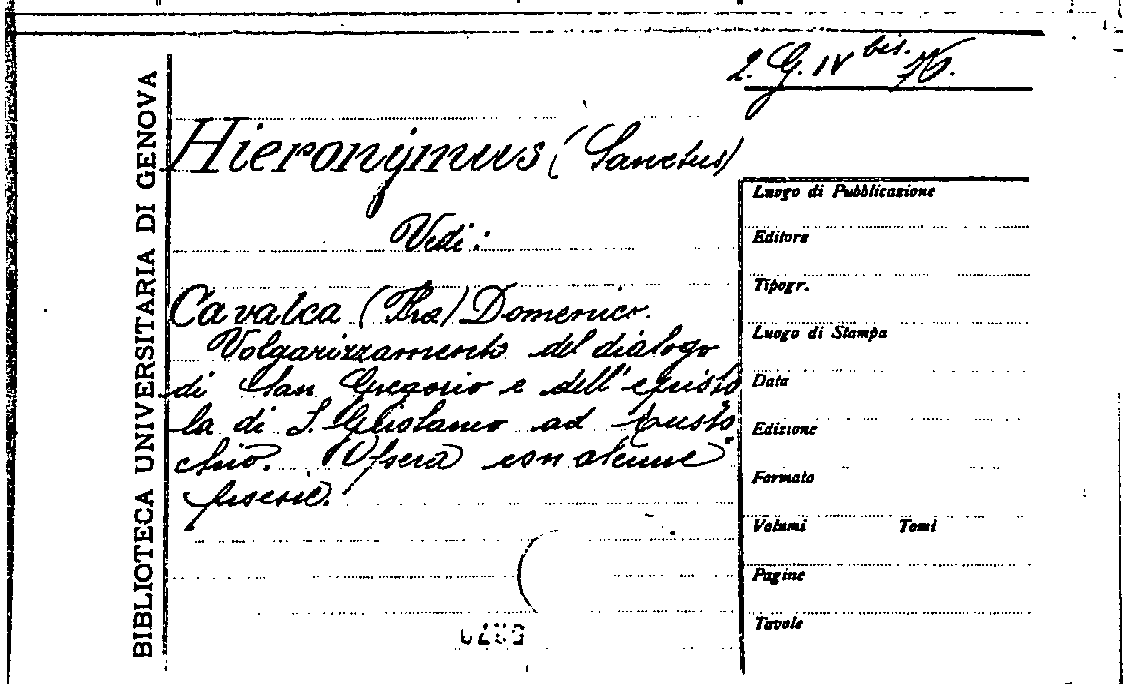 BIBLIOTECA UNIVERSITARIA DI GENOVA
2. G. IV bis. 76.
Hieronymus (Sanctus)
Vedi:
Cavalca (Fra) Domenico.
Volgarizzamento del dialogo
di San Gregorio e dell'episto
la di S. Girolamo ad Eusto
chio. Opera con alcune
Luogo di Pubblicazione
Editore
Tipogr.
Luogo di Stampa
Data
Edizione
Formato
Volumi Tomi
Pagine
Tavole